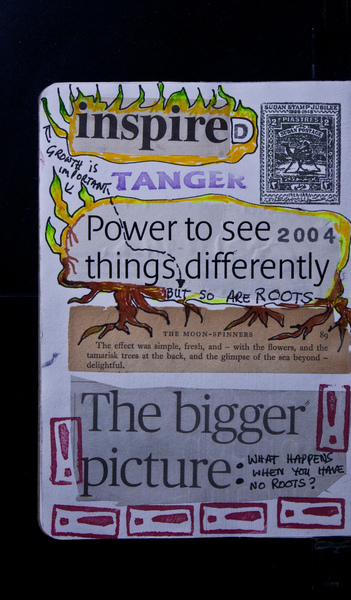 inspireD
SUDAN STAMP JUBILEE
2 PIASTRES 2
GROWTH IS
IMPORTANT
TANGER
Power to see
2004
things differently
BUT SO ARE ROOTS
THE MOON-SPINNERS 89
The effect was simple, fresh, and – with the flowers, and the
tamarisk trees at the back, and the glimpse of the sea beyond –
delightful.
The bigger
picture:
WHAT HAPPENS
WHEN YOU HAVE
NO ROOTS?